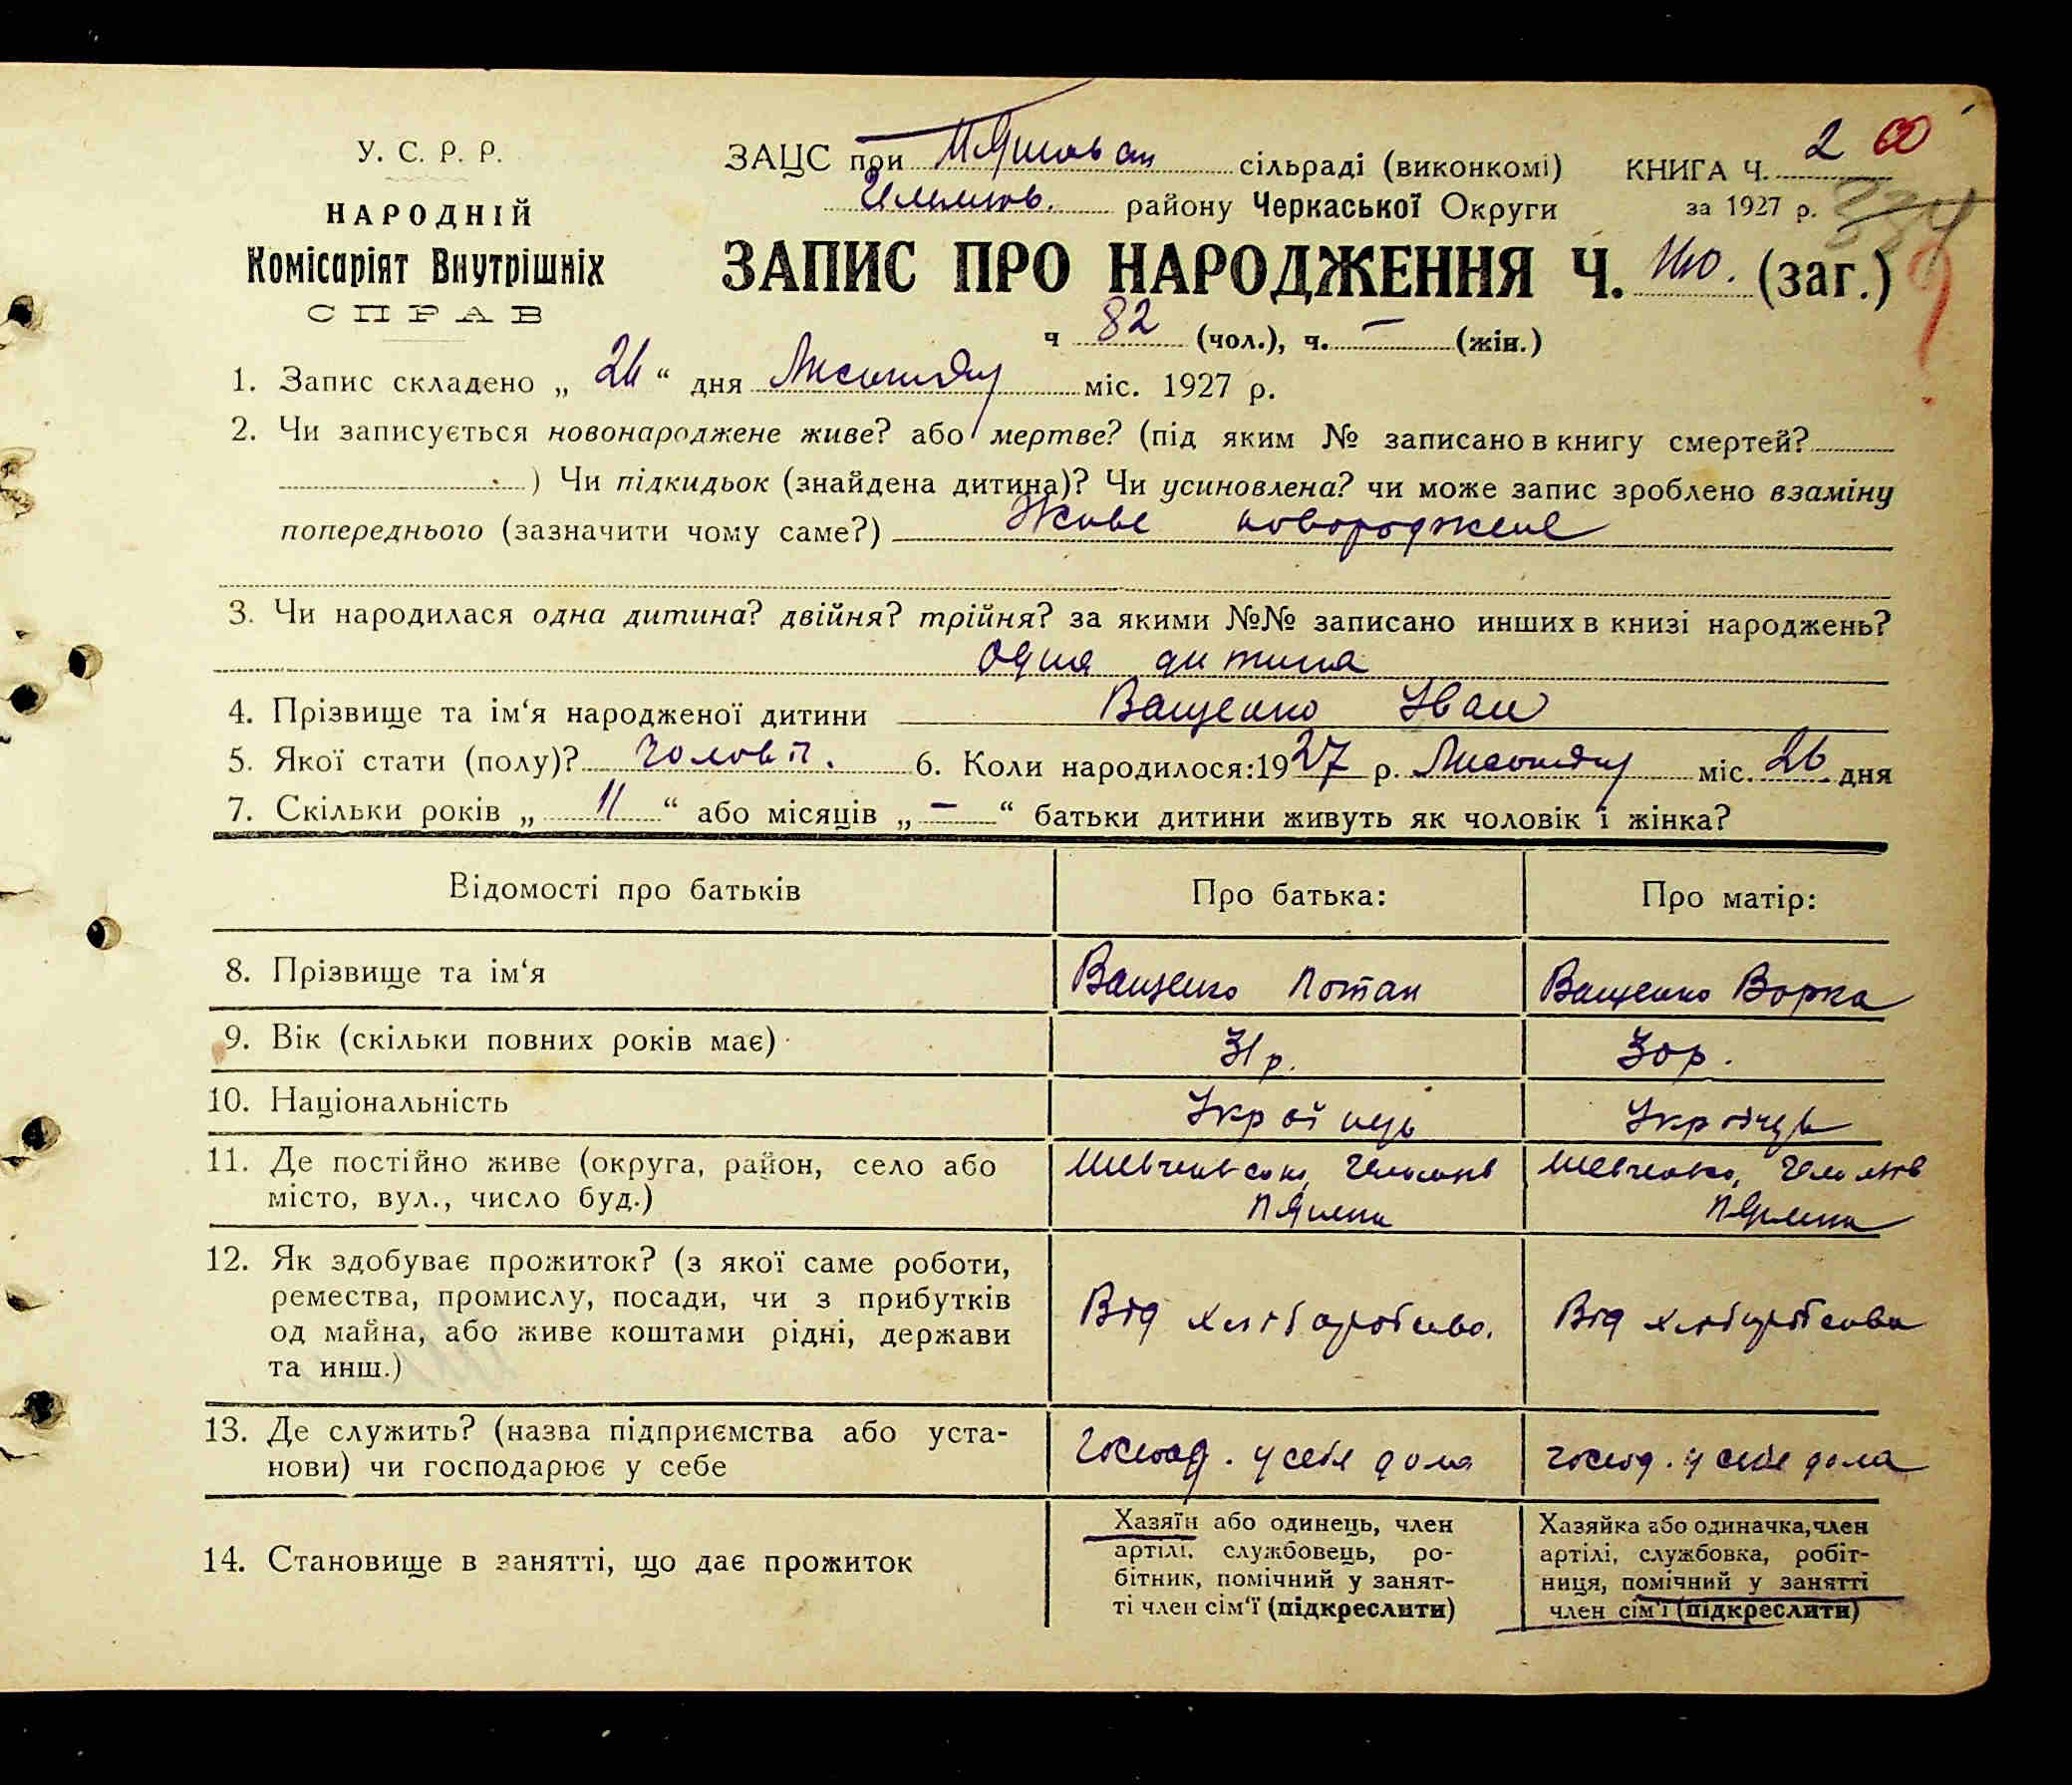 У. С. Р. Р.
НАРОДНІЙ
Комісаріят Внутрішніх
СПРАВ
ЗАЦС при сільраді (виконкомі)
району Черкаської Округи
КНИГА Ч. 2
за 1927 р.
334
ЗАПИС ПРО НАРОДЖЕННЯ Ч. (заг.)
ч 82 (чол.), ч. — (жін.)
1. Запис складено „ 26 “ дня Листопаду міс. 1927 р.
2. Чи записується новонароджене живе? або мертве? (під яким № записано в книгу смертей?
) Чи підкидьок (знайдена дитина)? Чи усиновлена? чи може запис зроблено взаміну
попереднього (зазначити чому саме?) Живе новороджене
3. Чи народилася одна дитина? двійня? трійня? за якими №№ записано инших в книзі народжень?
Одна дитина
4. Прізвище та ім‘я народженої дитини Ващенко Іван
5. Якої стати (полу)? чоловіч. 6. Коли народилося: 1927 р. Листопаду міс. 26 дня
7. Скільки років „ 11 “ або місяців „ — “ батьки дитини живуть як чоловік і жінка?
Відомості про батьків Про батька: Про матір:
8. Прізвище та ім‘я Ващенко Потап Ващенко Ворка
9. Вік (скільки повних років має) 31 р. 30 р.
10. Національність Україець Українць
11. Де постійно живе (округа, район, село або
місто, вул., число буд.)
12. Як здобуває прожиток? (з якої саме роботи,
ремества, промислу, посади, чи з прибутків
од майна, або живе коштами рідні, держави
та инш.)
Від хліборобства. Від хліборобства
13. Де служить? (назва підприємства або уста-
нови) чи господарює у себе
господ. у себе дома господ. у себе дома
14. Становище в занятті, що дає прожиток
Хазяїн або одинець, член
артілі, службовець, ро-
бітник, помічний у занят-
ті член сім‘ї (підкреслити)
Хазяйка або одиначка, член
артілі, службовка, робіт-
ниця, помічний у занятті
член сім‘ї (підкреслити)